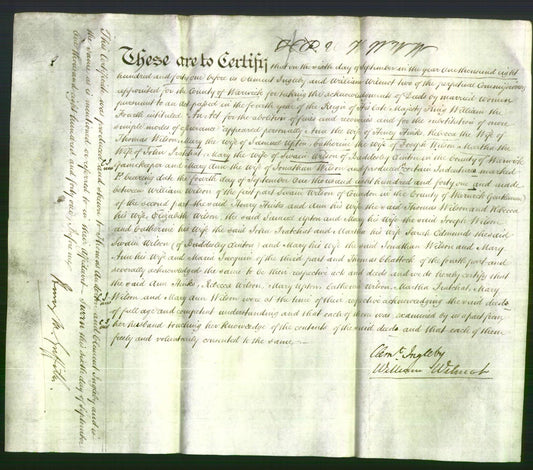 These are to Certify that on the sixth day of September in the year One thousand eight
hundred and forty one before us Clement Ingleby and William Wilmot two of the perpetual Commissioners
appointed for the County of Warwick for taking the acknowledgments of Deeds by married Women
pursuant to an Act passed in the fourth year of the Reign of His late Majesty King William the
Fourth intituled "An Act for the abolition of fines and recoveries and for the substitution of more
simple modes of Assurance" Appeared personally Ann the Wife of Henry Hanks Rebecca the Wife of
Thomas Wilson Mary the Wife of Samuel Upton Catherine the Wife of Joseph Wilson Martha the
Wife of John Trutchat Mary the Wife of Swain Wilson of Duddesby Aintree in the County of Warwick
and Mary Ann the Wife of Jonathan Wilson and produced certain Indentures marked
bearing date the fourth day of September One thousand eight hundred and forty one and made
between William Wilson of the first part Swain Wilson of in the County of Warwick Gentleman
of the second part the said Henry Hanks and Ann his Wife the said Thomas Wilson and Rebecca
his Wife Elizabeth Wilson the said Samuel Upton and Mary his Wife the said Joseph Wilson
and Catherine his Wife the said John Trutchat and Martha his Wife Sarah Edmunds the said
Swain Wilson (of ) and Mary his Wife the said Jonathan Wilson and Mary
Ann his Wife and Maria of the third part and Thomas Chattock of the fourth part and
severally acknowledged the same to be their respective acts and deeds and we do hereby certify that
the said Ann Hanks Rebecca Wilson Mary Upton Catherine Wilson Martha Trutchat Mary
Wilson and Mary Ann Wilson were at the time of their respective acknowledging the said deeds
of full age and competent understanding and that each of them was examined by us apart from
her husband touching her knowledge of the contents of the said deeds and that each of them
freely and voluntarily consented to the same
Clemt. Ingleby
William Wilmot
This Certificate was produced and shewn to and Clement Ingleby and is
the same as is mentioned or referred to in their affidavit Sworn this sixth day of September
One thousand eight hundred and forty one Before me